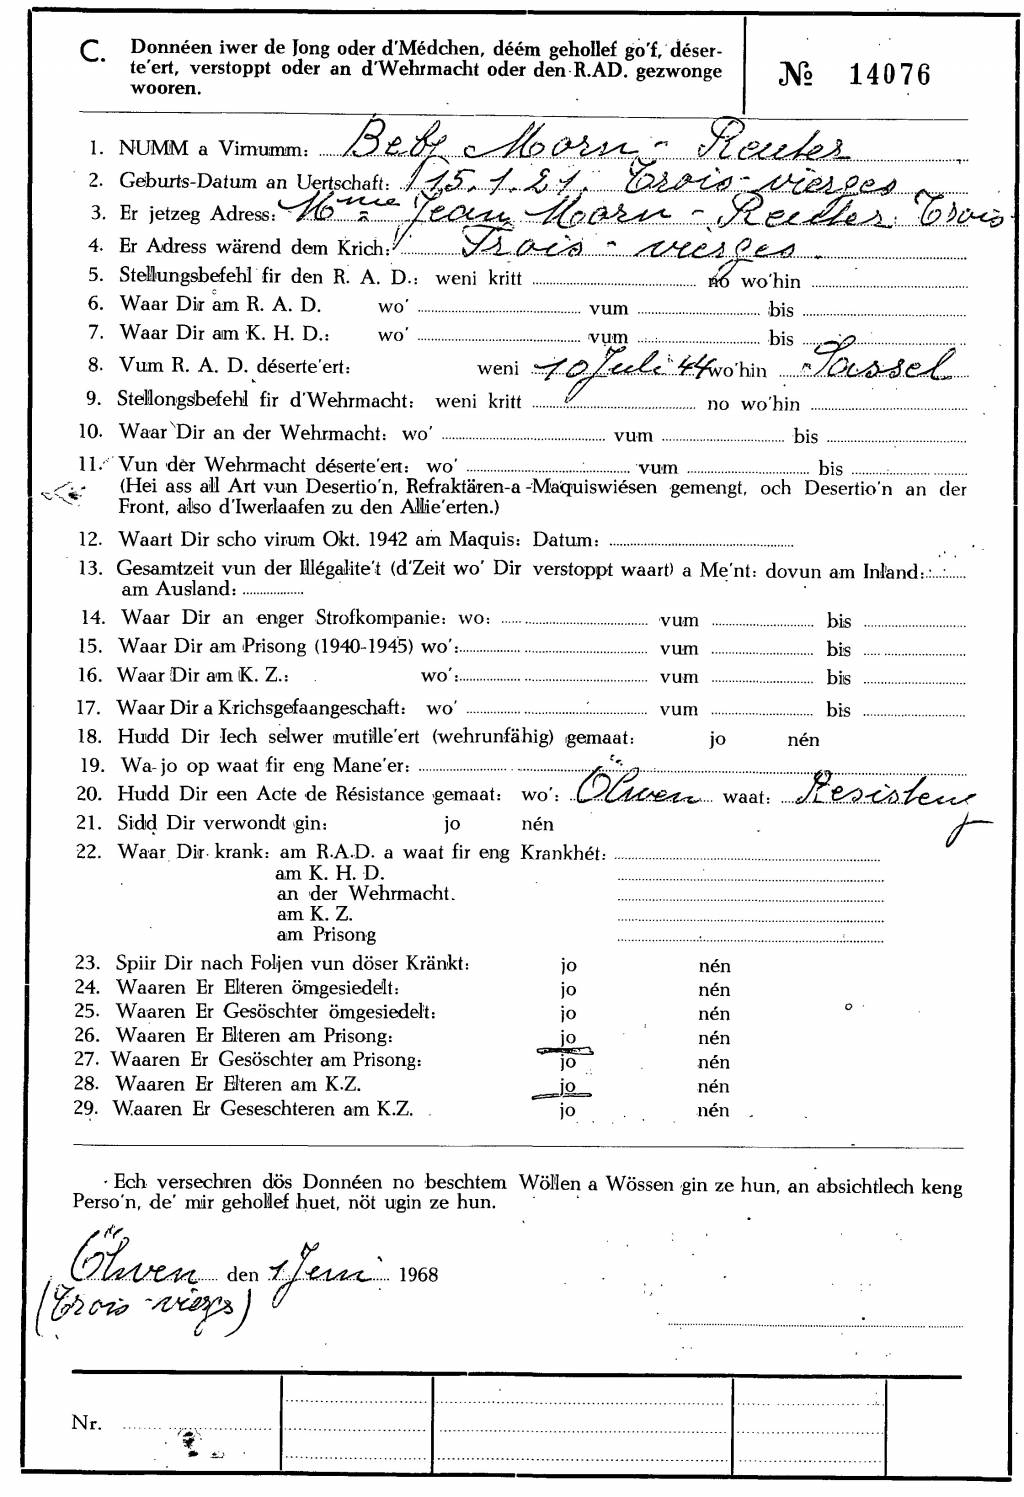 C. Donnéen iwer de Jong oder d'Médchen, déém gehollef go'f, déser-
te'ert, verstoppt oder an d'Wehrmacht oder den R.AD. gezwonge
wooren.
№ 14076
1. NUMM a Virnumm: Beby Morn - Reuter
2. Geburts-Datum an Uertschaft: 15.1.21. Trois-vierges
3. Er jetzeg Adress: Mme Jean Morn - Reuter Trois-
4. Er Adress wärend dem Krich: Trois-vierges.
5. Stellungsbefehl fir den R. A. D.: weni kritt no wo'hin
6. Waar Dir am R. A. D. wo' vum bis
7. Waar Dir am K. H. D.: wo' vum bis
8. Vum R. A. D. déserte'ert: weni 10 Juli 44 wo'hin Sassel
9. Stellongsbefehl fir d'Wehrmacht: weni kritt no wo'hin
10. Waar Dir an der Wehrmacht: wo' vum bis
11. Vun der Wehrmacht déserte'ert: wo' vum bis
(Hei ass all Art vun Desertio'n, Refraktären-a-Maquiswiésen gemengt, och Desertio'n an der
Front, also d'Iwerlaafen zu den Allie'erten.)
12. Waart Dir scho virum Okt. 1942 am Maquis: Datum:
13. Gesamtzeit vun der Illégalite't (d'Zeit wo' Dir verstoppt waart) a Me'nt: dovun am Inland:
am Ausland:
14. Waar Dir an enger Strofkompanie: wo: vum bis
15. Waar Dir am Prisong (1940-1945) wo': vum bis
16. Waar Dir am K. Z.: wo': vum bis
17. Waar Dir a Krichsgefaangeschaft: wo' vum bis
18. Hudd Dir Iech selwer mutille'ert (wehrunfähig) gemaat: jo nén
19. Wa jo op waat fir eng Mane'er:
20. Hudd Dir een Acte de Résistance gemaat: wo': Ölwen waat: Resistenz
21. Sidd Dir verwondt gin: jo nén
22. Waar Dir krank: am R.A.D. a waat fir eng Krankhét:
am K. H. D.
an der Wehrmacht.
am K. Z.
am Prisong
23. Spiir Dir nach Foljen vun döser Kränkt: jo nén
24. Waaren Er Elteren ömgesiedelt: jo nén
25. Waaren Er Gesöschter ömgesiedelt: jo nén
26. Waaren Er Elteren am Prisong: jo nén
27. Waaren Er Gesöschter am Prisong: jo nén
28. Waaren Er Elteren am K.Z. jo nén
29. Waaren Er Geseschteren am K.Z. jo nén
Ech versechren dös Donnéen no beschtem Wöllen a Wössen gin ze hun, an absichtlech keng
Perso'n, de' mir gehollef huet, nöt ugin ze hun.
Ölwen den 1 Juni 1968
(Trois-vierges)
Nr.